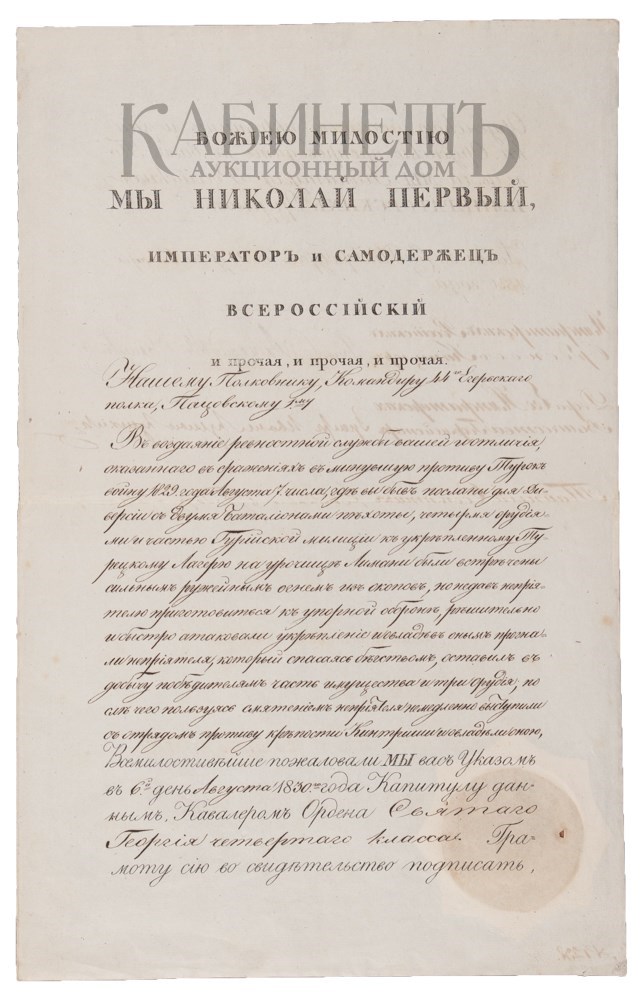 КАБИНЕТЪ
АУКЦИОННЫЙ ДОМ
БОЖІЕЮ МИЛОСТІЮ
МЫ НИКОЛАЙ ПЕРВЫЙ,
ИМПЕРАТОРЪ и САМОДЕРЖЕЦЪ
ВСЕРОССІЙСКІЙ
и прочая, и прочая, и прочая.
Нашему Полковнику, Командиру 44го Егерскаго
полка, Пацовскому 1му
Въ воздаяніе ревностной службы вашей и отличія,
оказаннаго въ сраженіяхъ въ минувшую противу Турокъ
войну 1829 года Августа 7. числа, где вы бывъ посланы для Ди-
версіи съ двумя баталіонами пѣхоты, четырмя орудія-
ми и частью Гурійской милиціи къ укрѣпленному Ту-
рецкому Лагерю на урочищѣ Лимани были встрѣчены
сильнымъ ружейнымъ огнемъ изъ окоповъ, но недавъ непрія-
телю приготовиться къ упорной оборонѣ, рѣшительно
и быстро атаковали укрѣпленіе и овладѣвъ онымъ прогна-
ли непріятеля, который спасаясь бѣгствомъ, оставилъ въ
добычу побѣдителямъ часть имущества и три Орудія; по
слѣ чего пользуясь смятеніемъ непріятеля немедленно выступили
съ отрядомъ противу крѣпости Кинтриши и овладѣли оною,
Всемилостивѣйше пожаловали МЫ васъ Указомъ
въ 6й день Августа 1830го года Капитулу дан-
нымъ, Кавалеромъ Ордена Святаго
Георгія четвертаго класса. Гра-
моту сію во свидѣтельство подписать,